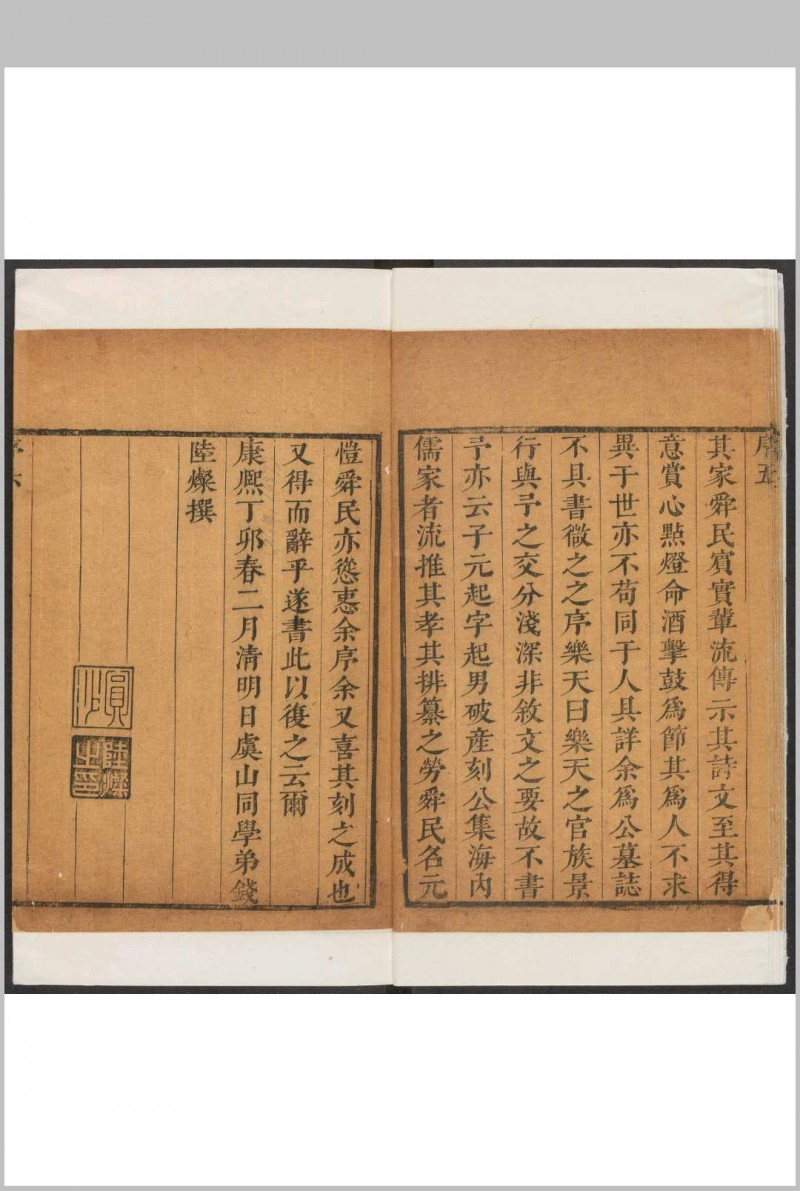 序五
其家舜民賓實輩流傳示其詩文至其得
意賞心㸃燈命酒擊鼓爲節其爲人不求
異于世亦不苟同于人具詳余爲公墓誌
不具書微之之序樂天曰樂天之官族景
行與予之交分淺深非敘文之要故不書
予亦云子元起字起男破産刻公集海內
儒家者流推其孝其排纂之勞舜民名元
愷舜民亦慫恿余序余又喜其刻之成也
又得而辭乎遂書此以復之云爾
康熈丁卯春二月清明日虞山同學弟錢
陸燦撰
陸燦之印
序六